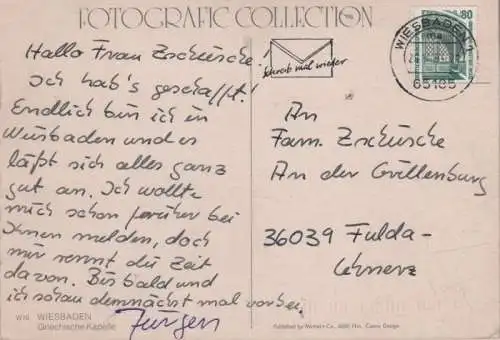 FOTOGRAFIC COLLECTION
Hallo Frau Zschüsche!
Ich hab's geschafft!
Endlich bin ich in
Wiesbaden und es
läßt sich alles ganz
gut an. Ich wollte
mich schon früher bei
Ihnen melden, doch
mir rennt die Zeit
davon. Bis bald und
ich schau demnächst mal vorbei.
Jürgen
W16 WIESBADEN
Griechische Kapelle
Schreib mal wieder
80
WIESBADEN 1
65185
An
Fam. Zschüsche
An der Grillenburg
36039 Fulda-